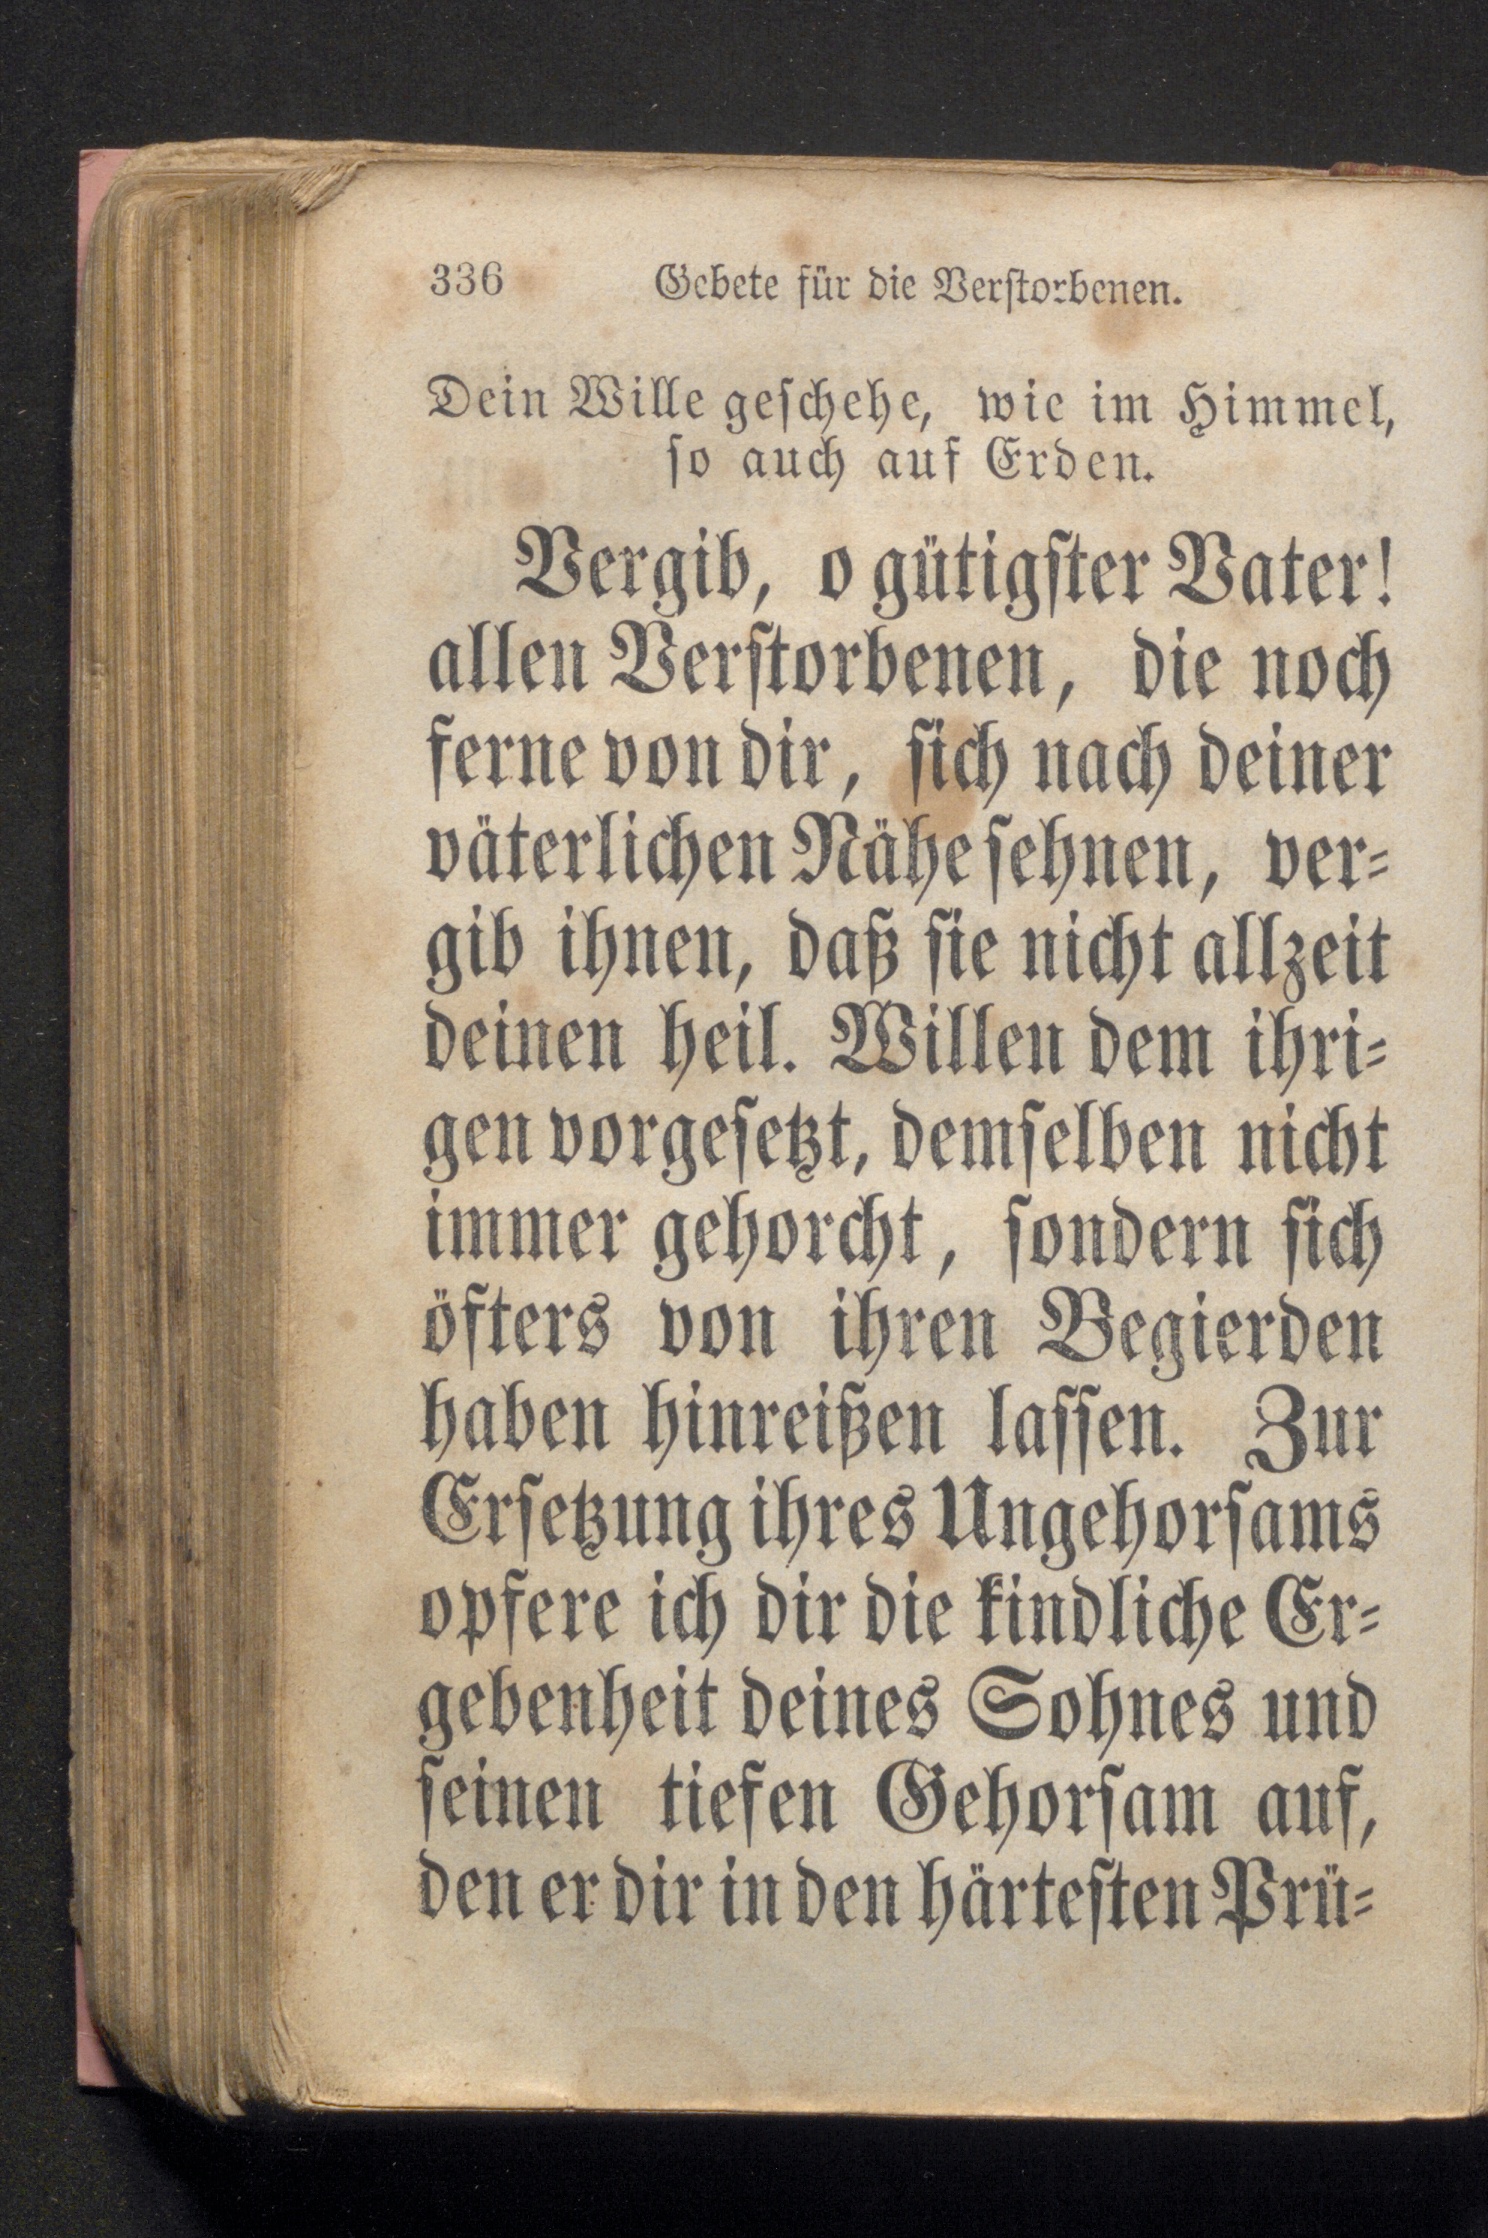 336 Gebete für die Verstorbenen.
Dein Wille geschehe, wie im Himmel,
so auch auf Erden.
Vergib, o gütigster Vater!
allen Verstorbenen, die noch
ferne von dir, sich nach deiner
väterlichen Nähe sehnen, ver-
gib ihnen, daß sie nicht allzeit
deinen heil. Willen dem ihri-
gen vorgesetzt, demselben nicht
immer gehorcht, sondern sich
öfters von ihren Begierden
haben hinreißen lassen. Zur
Ersetzung ihres Ungehorsams
opfere ich dir die kindliche Er-
gebenheit deines Sohnes und
seinen tiefen Gehorsam auf,
den er dir in den härtesten Prü-